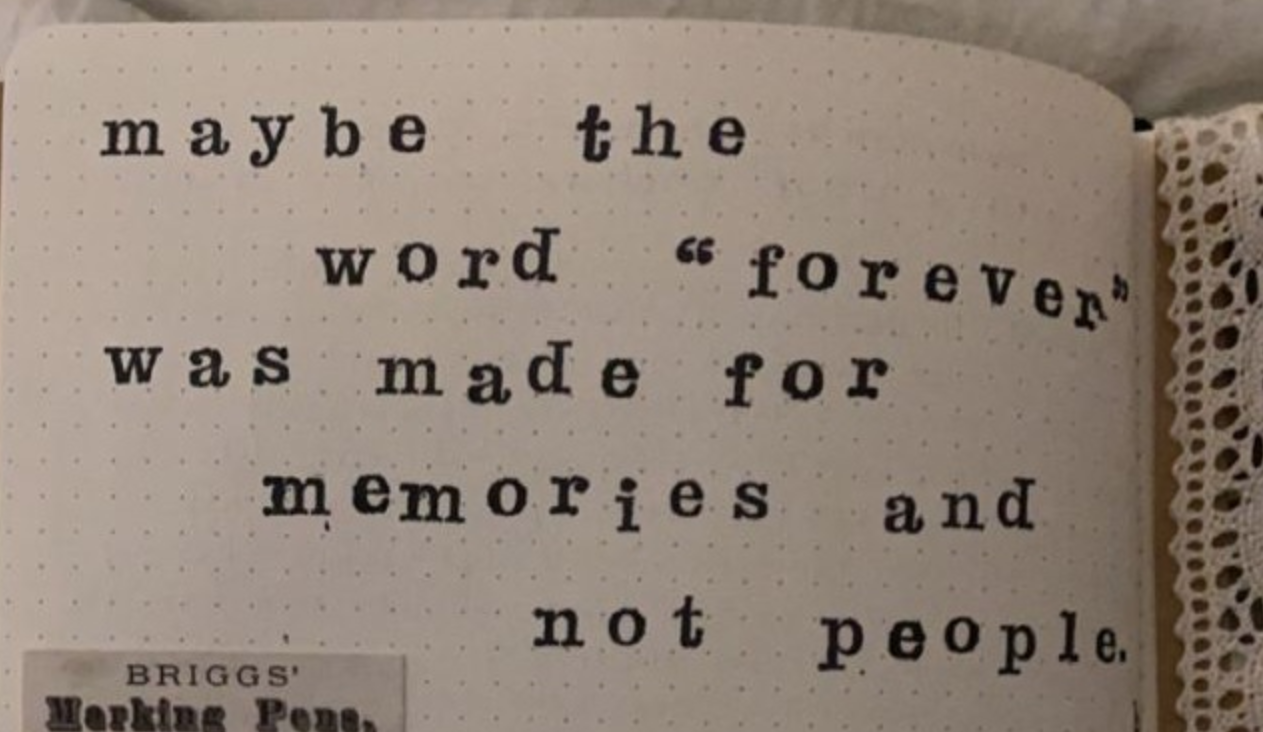 maybe the
word “forever”
was made for
memories and
not people.
BRIGGS'
Marking Pens.